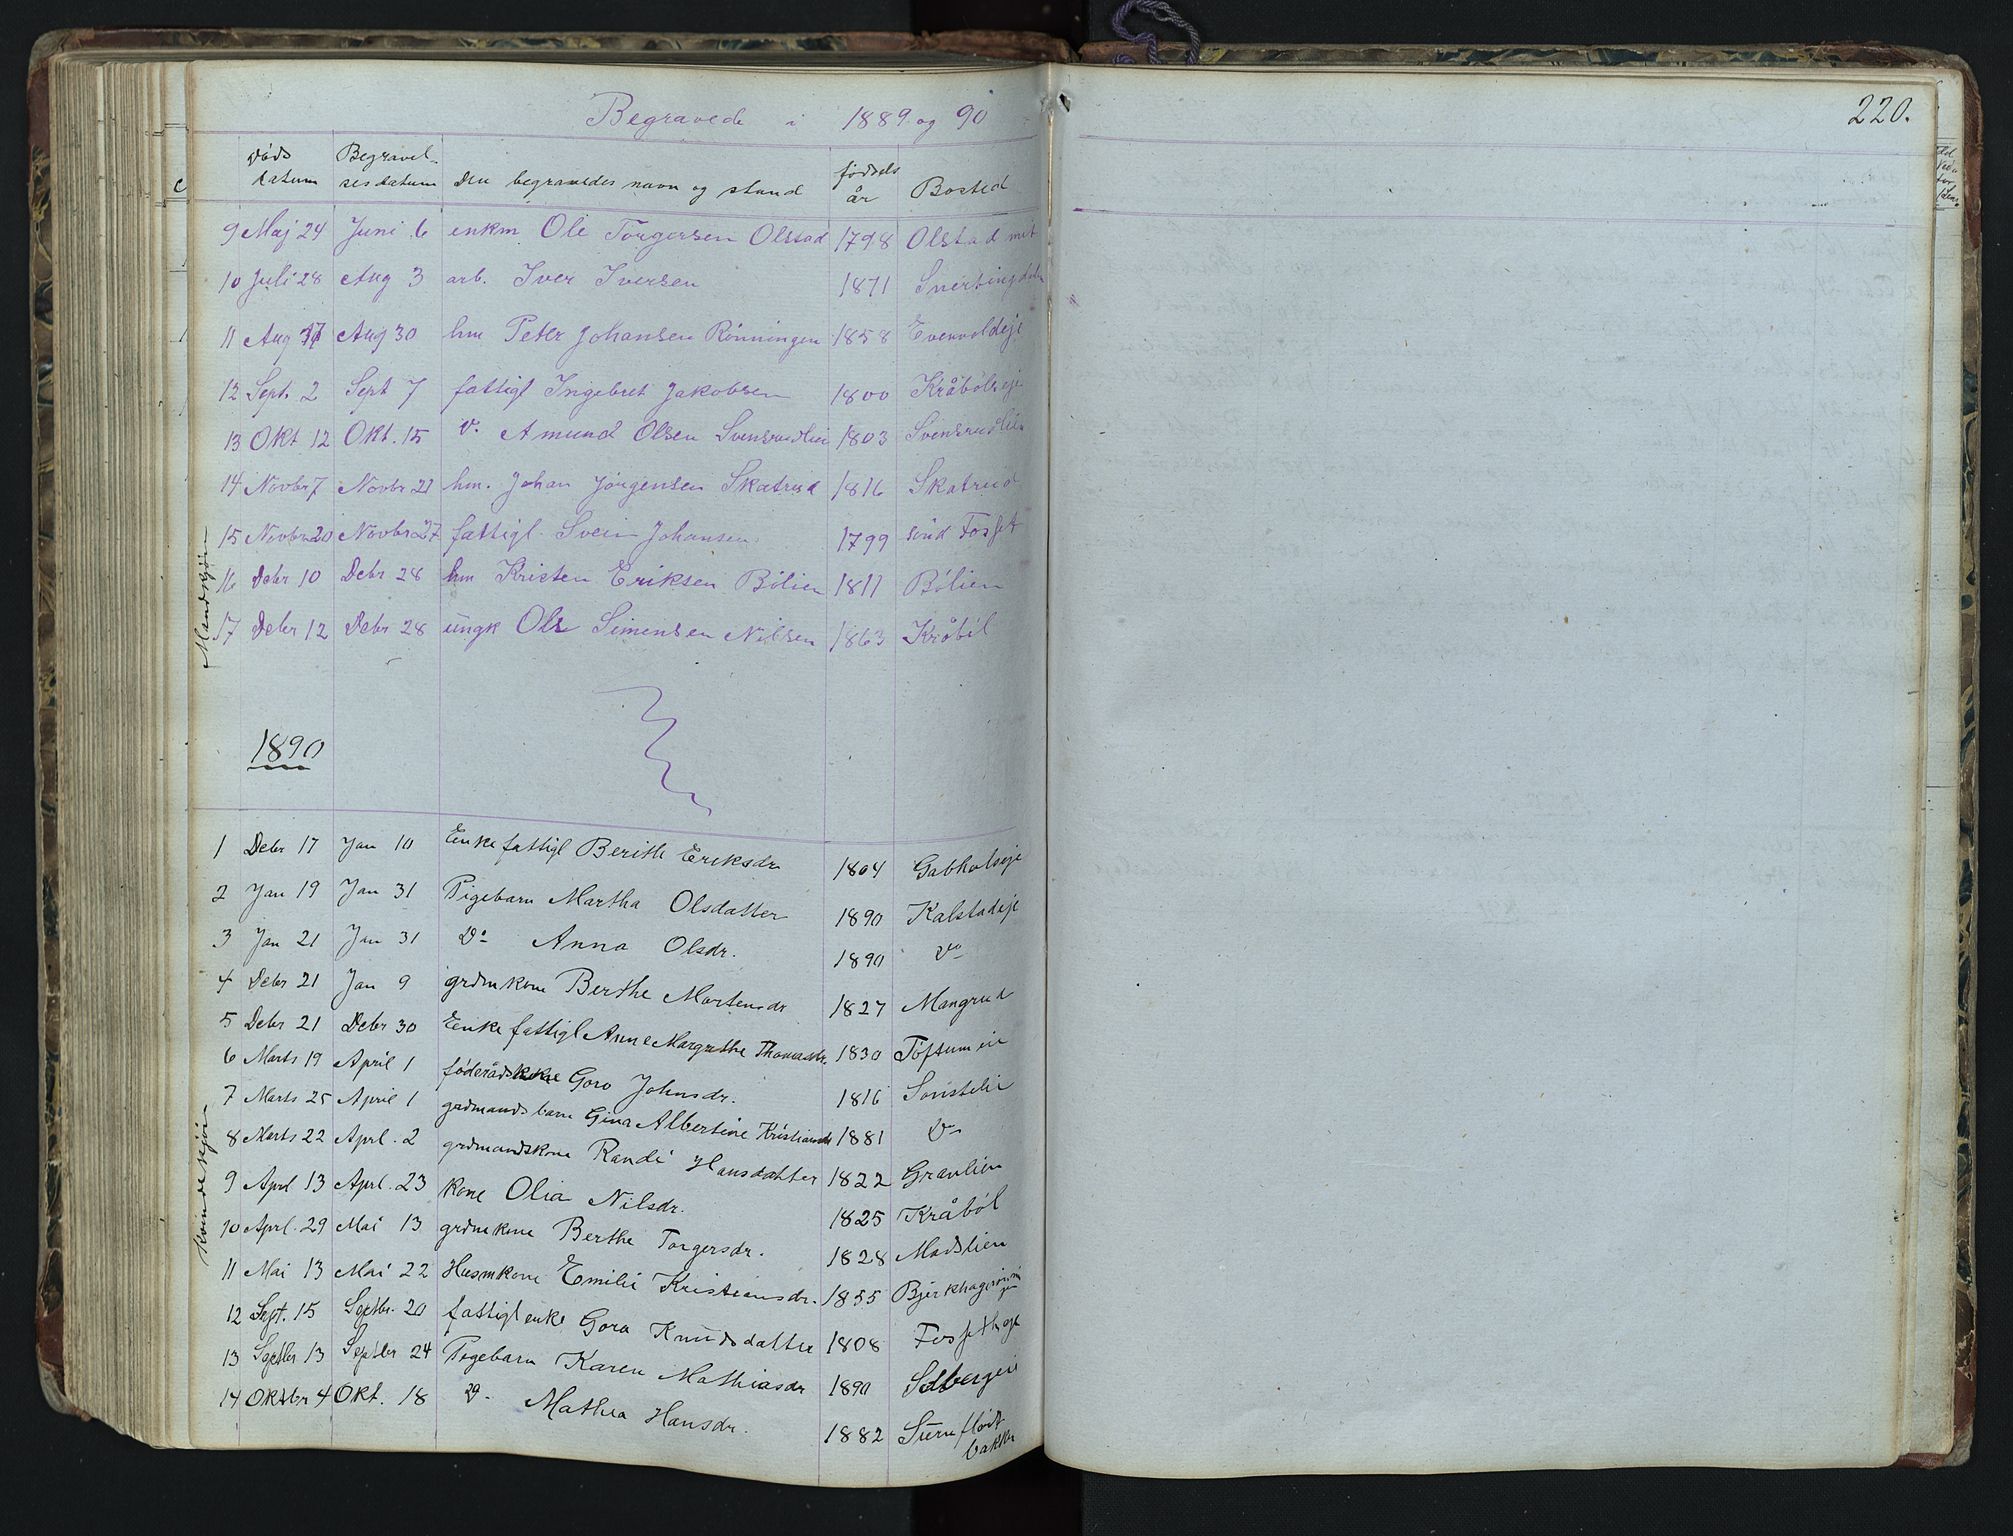 Begravede i 1889 og 90
220.
Døds datum | Begravelsesdatum | Den begravedes navn og stand | fødsels år | Bosted
Mandkjøn
9 Maj 24 | Juni 6 | enkm Ole Torgersen Olstad | 1798 | Olstad
10 Juli 28 | Aug 3 | arb. Iver Iversen | 1871 | Snertingdalen
11 Aug | Aug 30 | hm Peter Johansen Rønningen | 1858 | Evenvoldeje
12 Sept. 2 | Sept 7 | fattigl Ingebret Jakobsen | 1800 | Kråbølseje
13 Okt. 12 | Okt. 15 | D. Amund Olsen Svensrudlien | 1803 | Svensrudlien
14 Novbr 7 | Novbr 21 | hm. Johan Jørgensen Skatrud | 1816 | Skatrud
15 Novbr 20 | Novbr 27 | fattigl. Svein Johansen | 1799 | Fosset
16 Debr 10 | Debr 28 | hm Kristen Eriksen Bølien | 1811 | Bølien
17 Debr 12 | Debr 28 | ungk Ole Simensen Nilsen | 1863 | Kråbøl
1890
Kvindekjøn
1 Debr 17 | Jan 10 | Enke fattigl Berithe Eriksdr | 1804 | Gabholseje
2 Jan 19 | Jan 31 | Pigebarn Martha Olsdatter | 1890 | Kalstadeje
3 Jan 21 | Jan 31 | Do Anna Olsdr. | 1890 | Do
4 Debr 21 | Jan 9 | grdmkone Berthe Mortensdr | 1827 | Mangrud
5 Debr 21 | Debr 30 | Enke fattigl Anne Margrethe Thomasdr. | 1830 | Toftumeie
6 Marts 19 | April 1 | føderådskone Goro Johnsdr. | 1816 | Sonstelie
7 Marts 25 | April 1 | grdmandsbarn Gina Albertine Kristiansdr | 1881 | Do
8 Marts 22 | Aprl. 2 | grdmandskone Randi Hansdatter | 1822 | Gravlien
9 Aprl 13 | Aprl. 23 | Kone Olia Nilsdr. | 1825 | Kråbøl
10 Aprl. 29 | Mai 13 | grdmkone Berthe Torgersdr. | 1828 | Madslien
11 Mai 13 | Mai 22 | Husmkone Emilie Kristiansdr. | 1855
12 Sept. 15 | Septbr. 20 | fattigl enke Goro Knudsdatter | 1808
13 Septbr 13 | Septbr 24 | Pigebarn Karen Mathiasdr | 1890 | Solbergeie
14 Oktbr 4 | Okt. 18 | D. Mathea Hansdr. | 1882